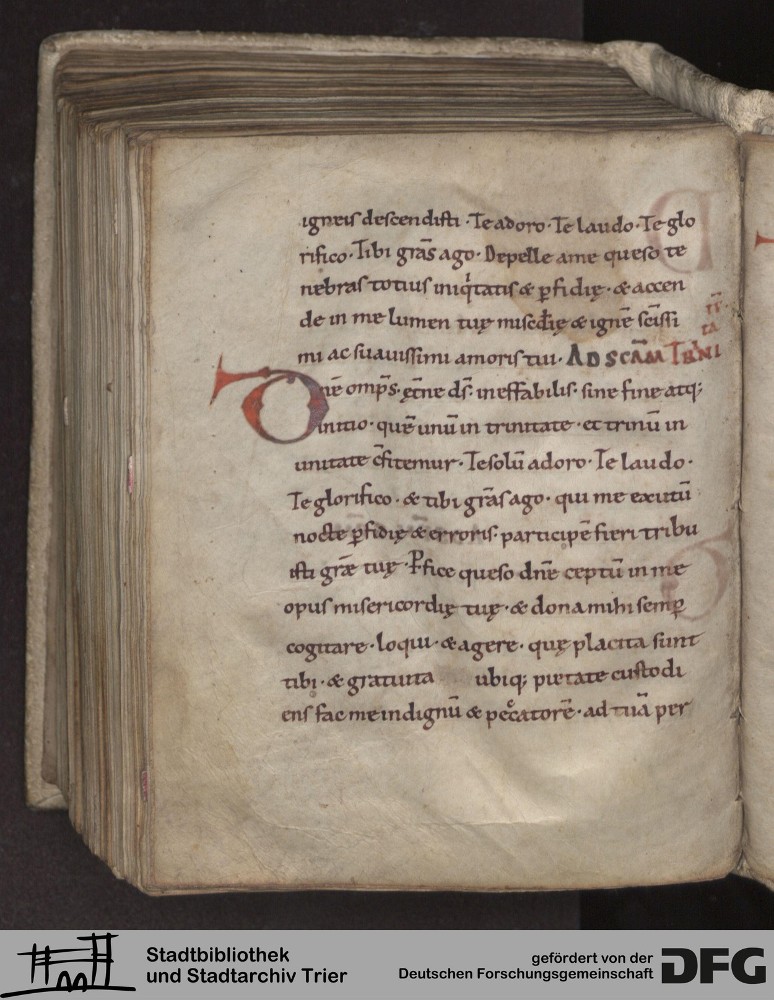 igneis descendisti · Te adoro · Te laudo · Te glo
rifico · Tibi gr̄as ago · Depelle a me queso te
nebras totius iniq̇tatis & ꝑfidię · & accen
de in me lumen tuę mis̄c̄dię & ignē s̄c̄issi
mi ac suauissimi amoris tui · AD SC̄AM TRINI
TA
D
nē omp̄s · ęt̄ne d̄s · ineffabilis · sine fine atq;
initio · quē unū in trinitate · et trinū in
unitate c̄fitemur · Te solū adoro · Te laudo ·
Te glorifico · & tibi gr̄as ago · qui me exutū
nocte ꝑfidię & erroris · participē fieri tribu
isti gr̄æ tuę · P̄fice queso dn̄e ceptū in me
opus misericordię tuę · & dona mihi semꝑ
cogitare · loqui · & agere · quę placita sunt
tibi · & gratuita ubiq; pietate custodi
ens fac me indignū & peccatorē · ad tuā per
Stadtbibliothek
und Stadtarchiv Trier
gefördert von der
Deutschen Forschungsgemeinschaft
DFG